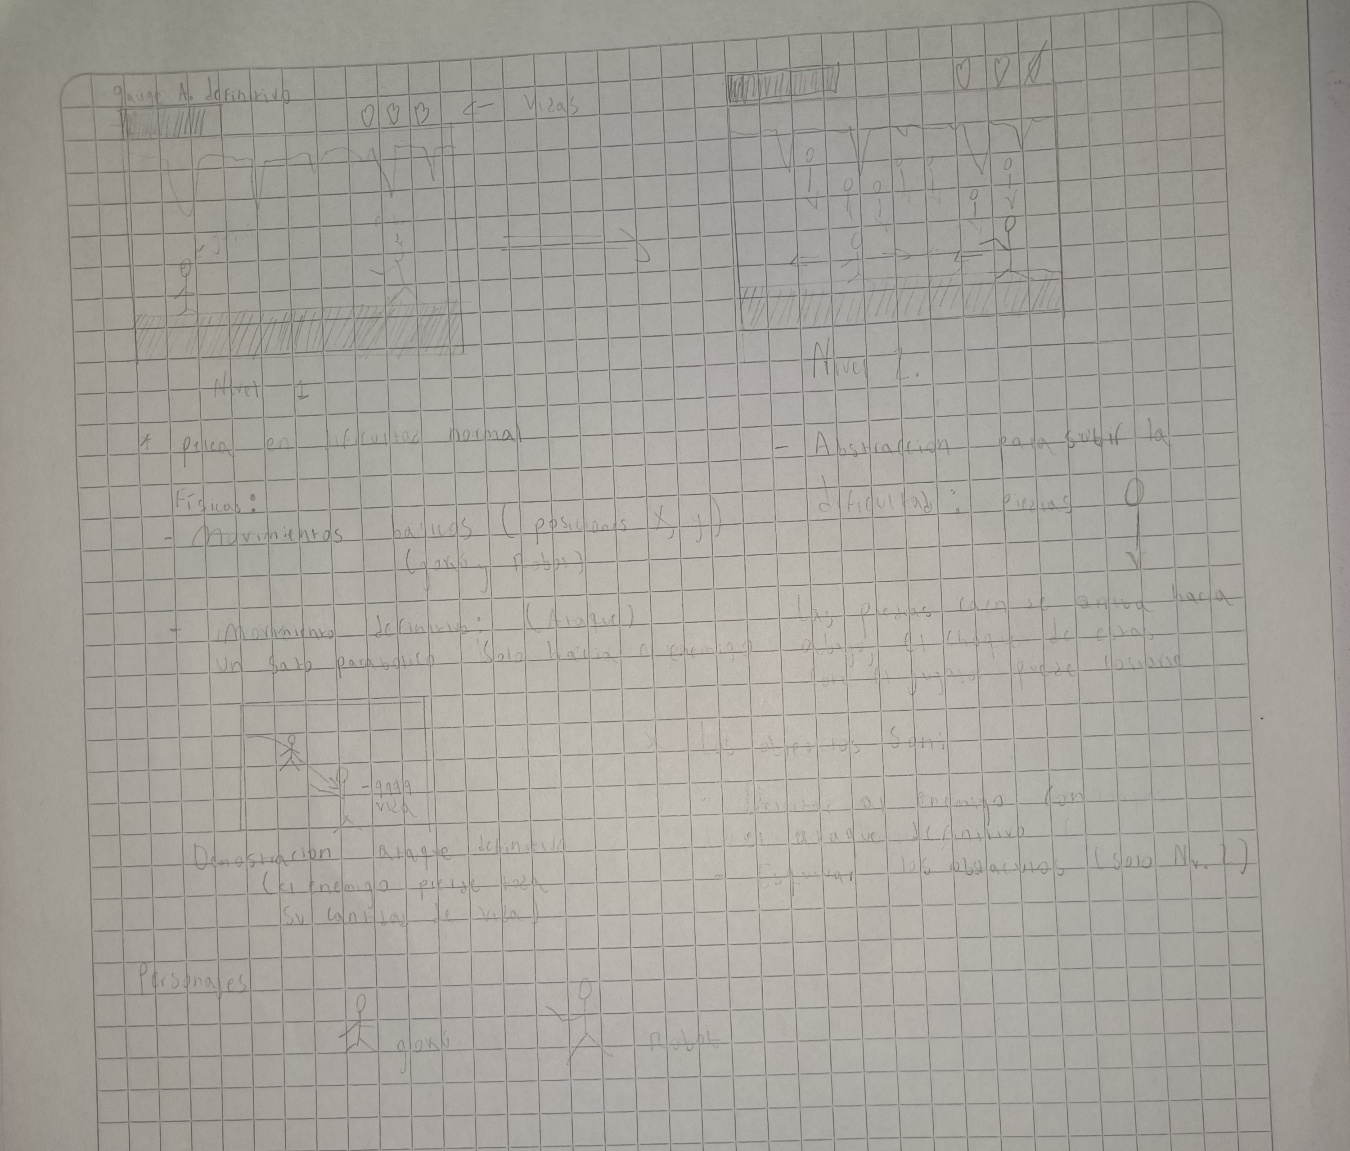 gauge A. definitivo
← Vidas
Nivel 1
* pelea en dificultad normal
Físicas:
- Movimientos básicos (posiciones X, y)
y Robot)
- Movimiento definitivo: (Ataque)
un salto parabólico solo hacia el enemigo
- 9999
vida
Demostración ataque definitivo
(el enemigo pierde toda
su cantidad de vida)
Personajes
Robot
Nivel 2.
- Abstracción para subir la
dificultad: piezas
Las piezas caen de arriba hacia
abajo, el choque de estas
con el jugador puede
Los objetivos son:
- al enemigo con
el ataque definitivo
- Esquivar los obstáculos (Solo Nv. 2)